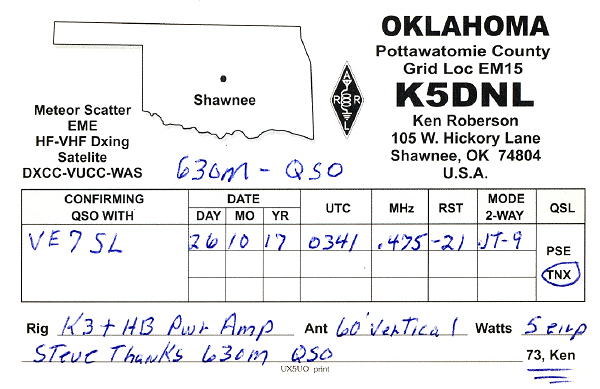 OKLAHOMA
Pottawatomie County
Grid Loc EM15
K5DNL
Ken Roberson
105 W. Hickory Lane
Shawnee, OK 74804
U.S.A.
Shawnee
ARRL
Meteor Scatter
EME
HF-VHF Dxing
Satelite
DXCC-VUCC-WAS
630m - QSO
CONFIRMING QSO WITH DATE DAY MO YR UTC MHz RST MODE 2-WAY QSL
VE7SL 26 10 17 0341 .475 -21 JT-9 PSE
TNX
Rig K3 + HB Pwr Amp Ant 60' Vertical Watts 5 eirp
Steve Thanks 630m QSO 73, Ken
UX5UO print